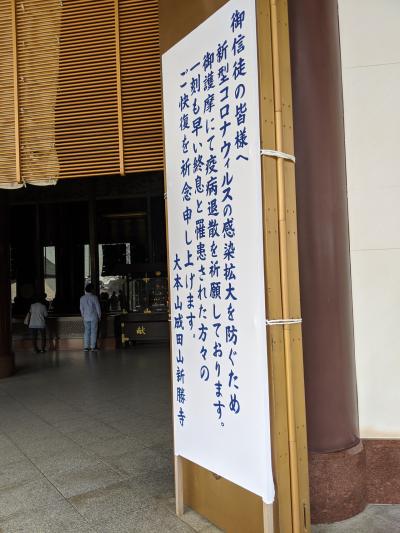 御信徒の皆様へ
新型コロナウィルスの感染拡大を防ぐため
御護摩にて疫病退散を祈願しております。
一刻も早い終息と罹患された方々の
ご快復を祈念申し上げます。
大本山成田山新勝寺
献